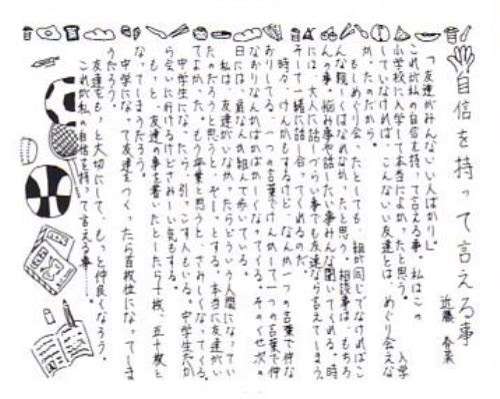 自信を持って言える事
近藤 春菜
「友達がみんないい人ばかり」
これが私の自信を持って言える事。私はこの
小学校に入学して本当によかったと思う。入学
していなければ、こんないい友達とは、めぐり会えな
かったのだから。
もしめぐり会ったとしても、組が同じでなければこ
んな親しくはなれなかったと思う。相談事は、もちろ
んの事。悩み事や話したい事みんな聞いてくれる。時
には、大人に話しづらい事でも友達なら言えてしまう。
そして一緒に話し合ってくれるのだ。
時々、けんかもするけど、なんか一つの言葉で仲な
おりしてる。一つの言葉でけんかして一つの言葉で仲
なおりなんかばかばかしくなってくる。そのくせ次の
日には、肩なんか組んで歩いている。
私は、友達がいなかったらどういう人間になってい
たのだろうと思うと、ぞーっとする。本当に友達がい
てよかった。もう卒業と思うと、さみしくなってくる。
中学生になったら、引っこす人もいる。中学生だか
ら会いに行けるけどさみしい気もする。
もっと、友達の事を書いたとしたら十枚、五十枚と
なってしまうだろう。
中学になって友達をつくったら百枚位になってしま
うだろう。
友達をもっと大切にして、もっと仲良くなろう。
これが私の自信を持って言える事……。